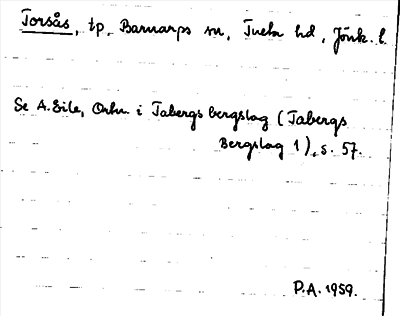 Torsås, tp, Barnarps sn, Tveta hd. Jönk. l.
Se A. Eile, Ortn i Tabergs bergslag (Tabergs
Bergslag 1), s. 57.
P.A. 1959.